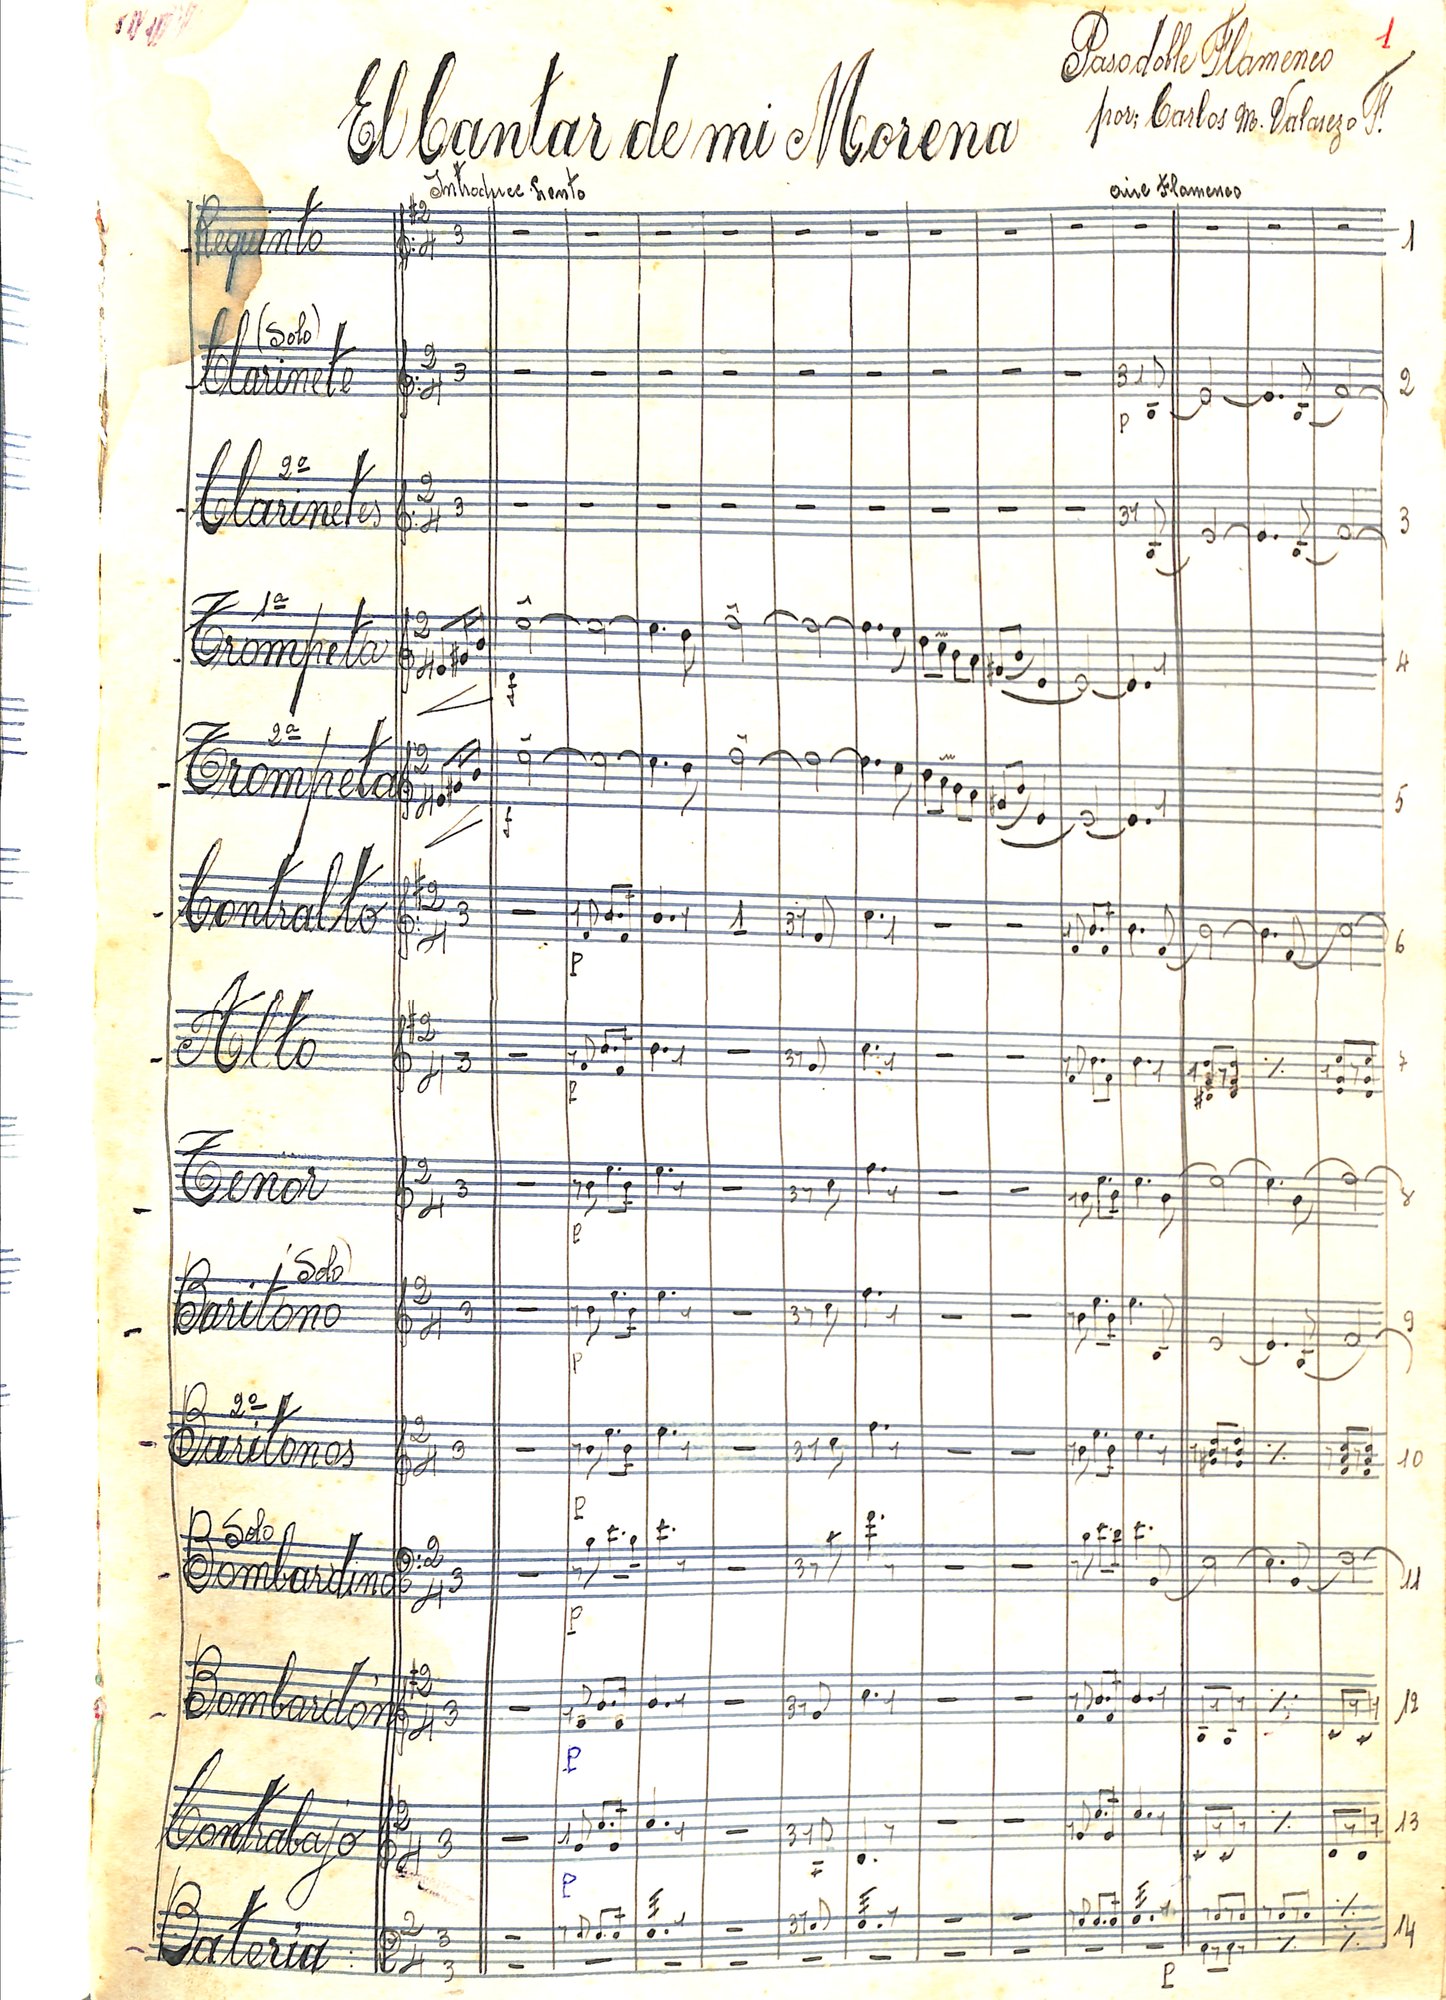 1
Pasodoble Flamenco
El Cantar de mi Morena
por: Carlos M. Valarezo F.
Introduce Lento
aire Flamenco
Requinto 1
(Solo)
Clarinete 2
P
2ª
Clarinetes 3
1ª
Trompeta 4
f
2ª
Trompeta 5
f
Contralto 6
P
Alto 7
P
Tenor 8
P
Solo
Baritono 9
P
2º
Baritonos 10
P
Solo
Bombardino 11
P
Bombardón 12
P
Contrabajo 13
P
Bateria 14
P